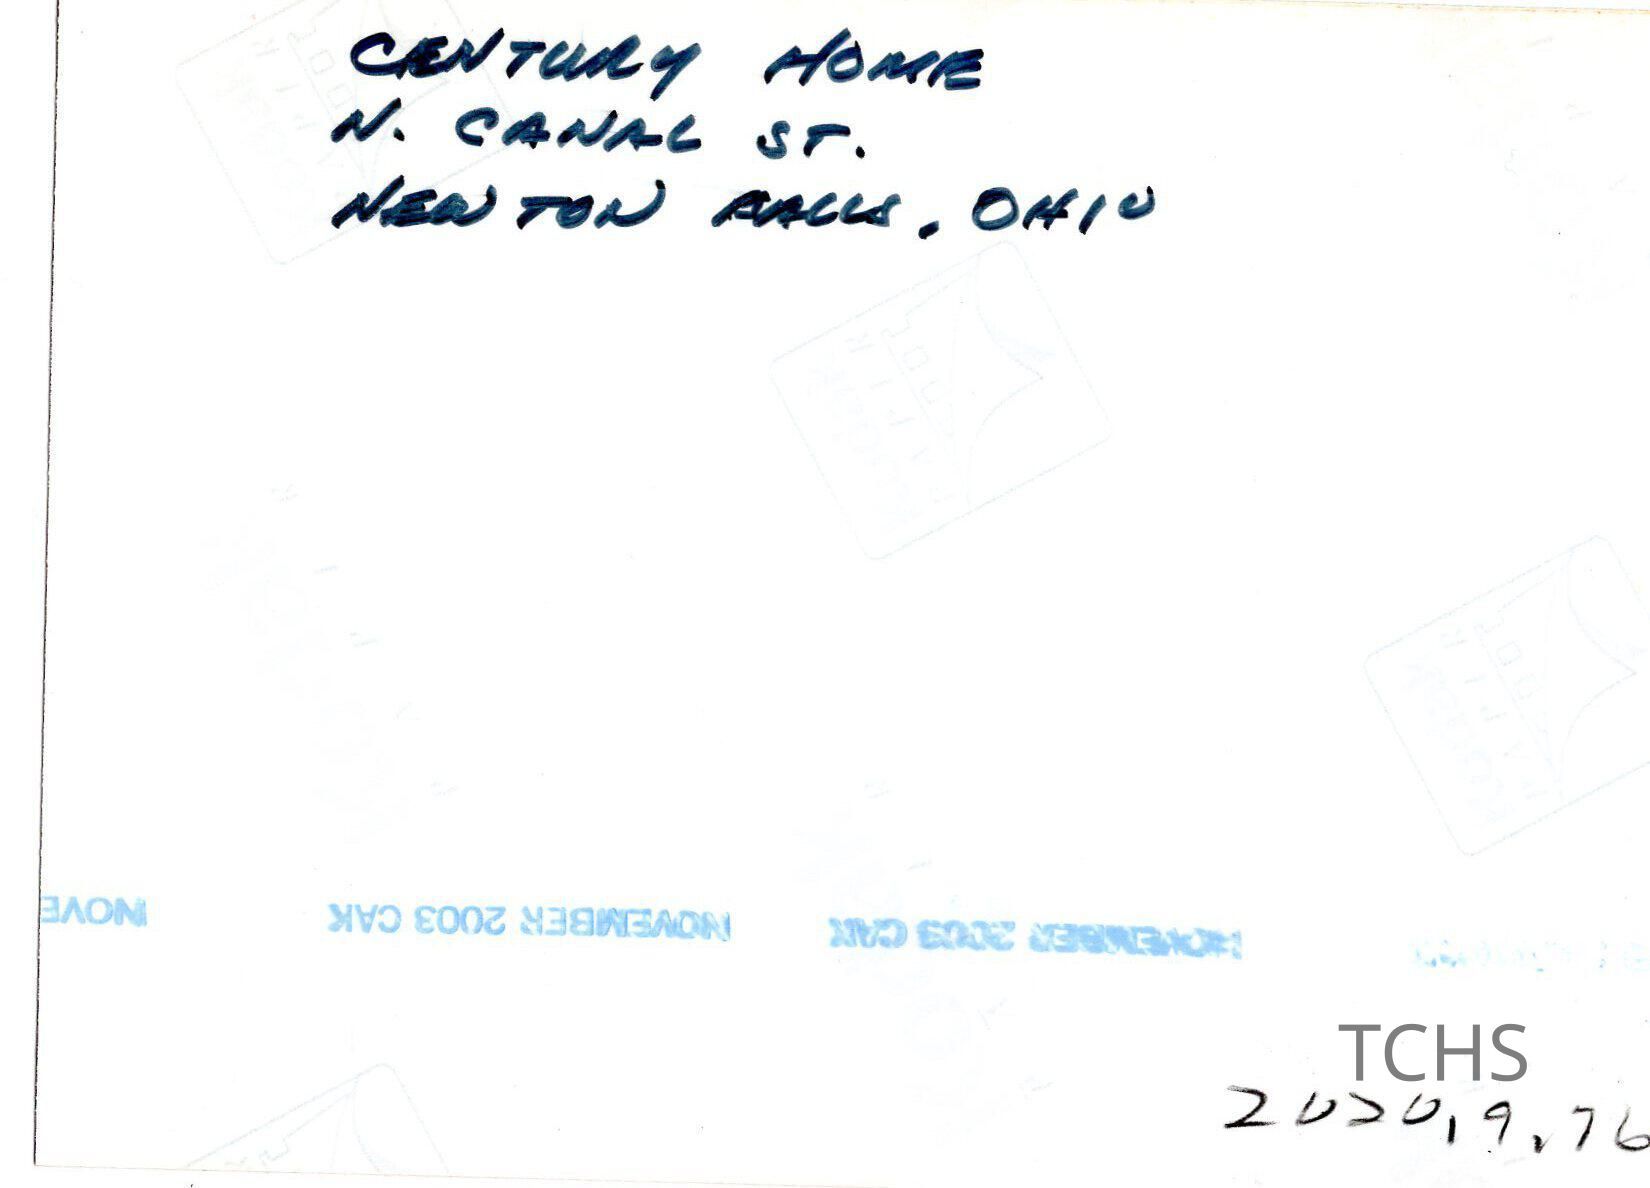 CENTURY HOME
N. CANAL ST.
NEWTON FALLS, OHIO
NOVE
NOVEMBER 2003 CAK
NOVEMBER 2003 CAK
TCHS
2020.9.76